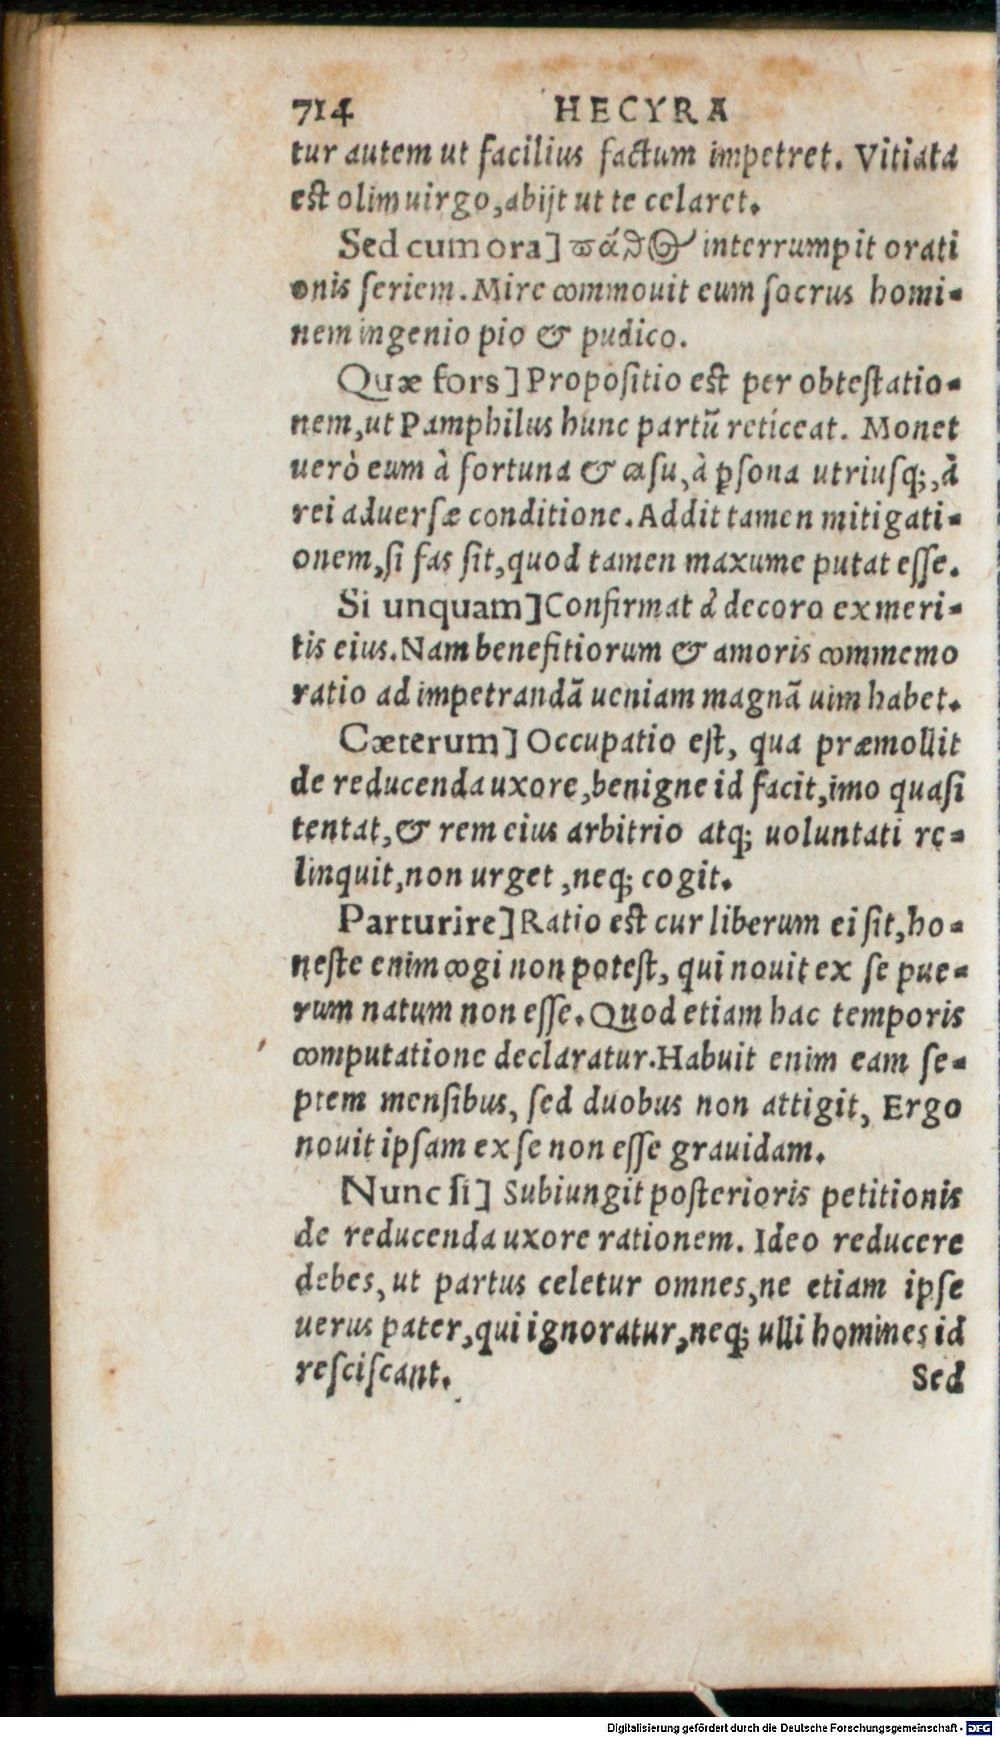 714 HECYRA
tur autem ut facilius factum impetret. Vitiata
est olim uirgo, abijt ut te celaret.
Sed cum ora] πάθος interrumpit orati
onis seriem. Mire commouit eum socrus homi-
nem ingenio pio & pudico.
Quæ fors] Propositio est per obtestatio-
nem, ut Pamphilus hunc partũ reticeat. Monet
uerò eum à fortuna & casu, à ꝑsona utriusq;, à
rei aduersæ conditione. Addit tamen mitigati-
onem, si fas sit, quod tamen maxume putat esse.
Si unquam] Confirmat à decoro ex meri-
tis eius. Nam benefitiorum & amoris commemo
ratio ad impetrandã ueniam magnã uim habet.
Cæterum] Occupatio est, qua præmollit
de reducenda uxore, benigne id facit, imo quasi
tentat, & rem eius arbitrio atq; uoluntati re-
linquit, non urget, neq; cogit.
Parturire] Ratio est cur liberum ei sit, ho-
neste enim cogi non potest, qui nouit ex se pue-
rum natum non esse. Quod etiam hac temporis
computatione declaratur. Habuit enim eam se-
ptem mensibus, sed duobus non attigit, Ergo
nouit ipsam ex se non esse grauidam.
Nunc si] Subiungit posterioris petitionis
de reducenda uxore rationem. Ideo reducere
debes, ut partus celetur omnes, ne etiam ipse
uerus pater, qui ignoratur, neq; ulli homines id
resciscant. Sed
Digitalisierung gefördert durch die Deutsche Forschungsgemeinschaft - DFG